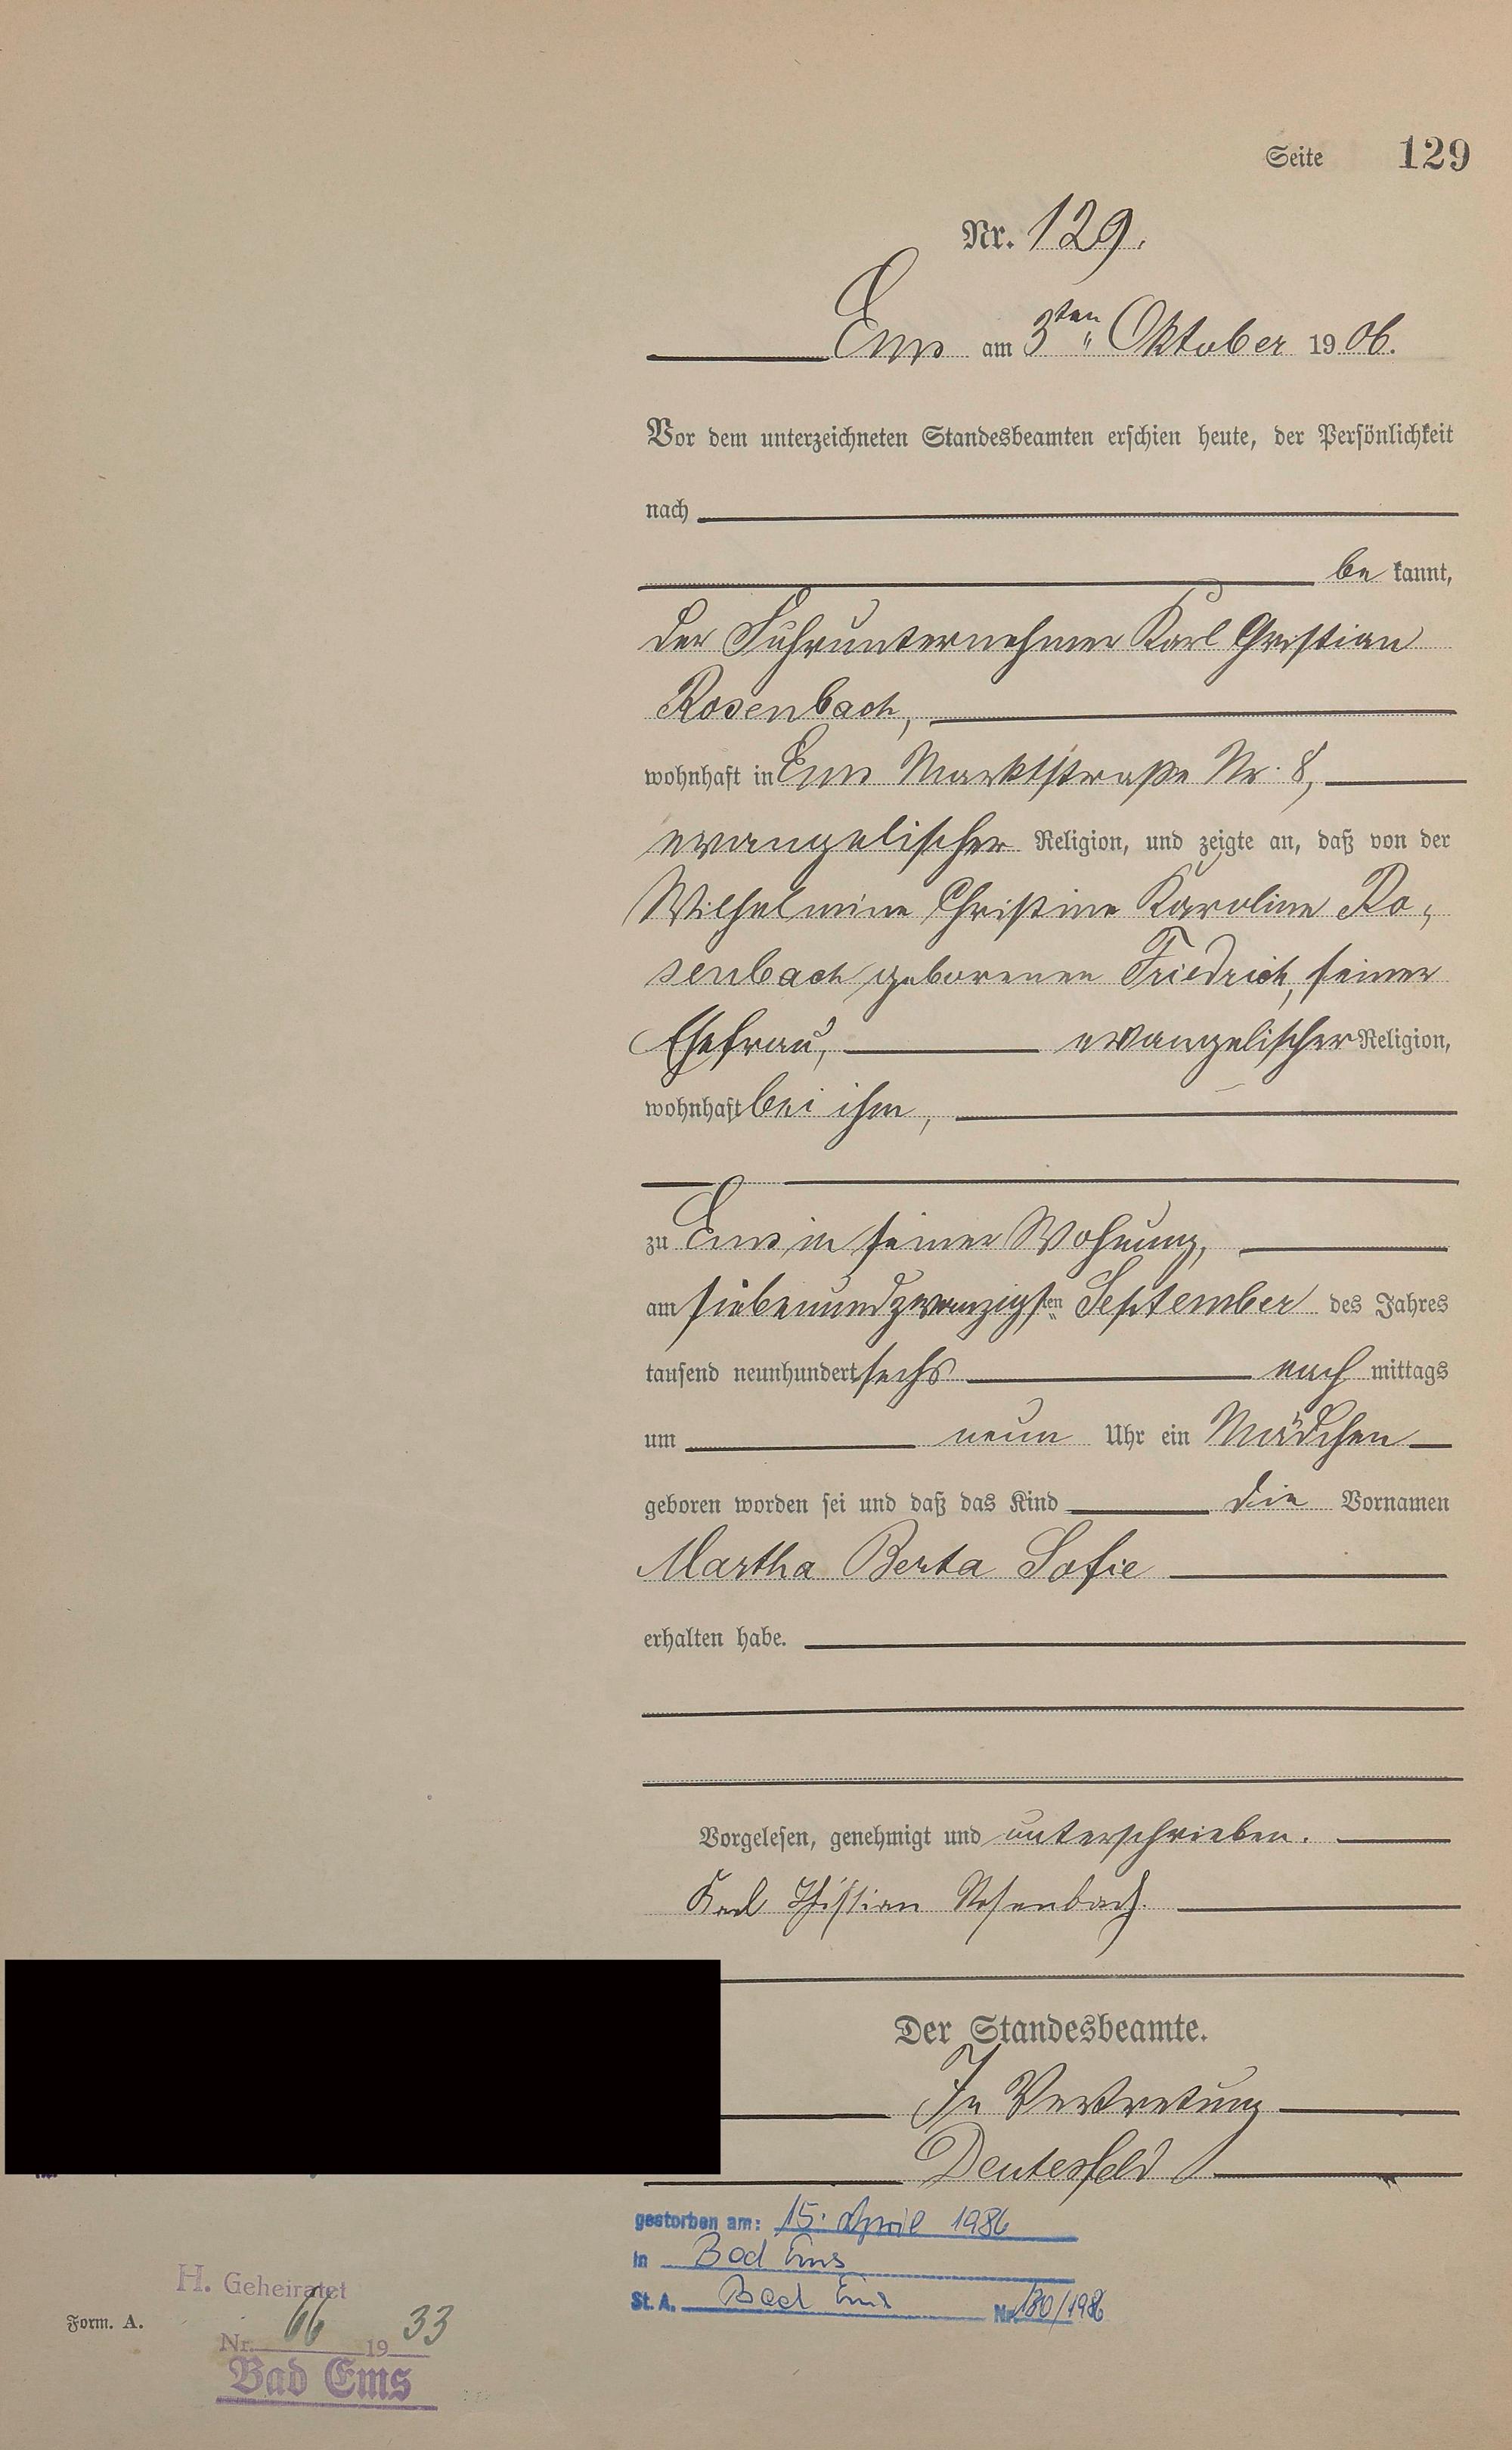 Seite 129
Nr. 129.
Ems am 3ten Oktober 1906.
Vor dem unterzeichneten Standesbeamten erschien heute, der Persönlichkeit
nach
be kannt,
der Fuhrunternehmer Karl Christian
Rosenbach,
wohnhaft in Ems Marktstraße Nr. 8,
evangelischer Religion, und zeigte an, daß von der
Wilhelmine Christine Karoline Ro-
senbach geborenen Friedrich, seiner
Ehefrau, evangelischer Religion,
wohnhaft bei ihm,
zu Ems in seiner Wohnung,
am siebenundzwanzigsten September des Jahres
tausend neunhundert sechs nach mittags
um neun Uhr ein Mädchen
geboren worden sei und daß das Kind die Vornamen
Martha Berta Sofie
erhalten habe.
Vorgelesen, genehmigt und unterschrieben.
Karl Christian Rosenbach.
Der Standesbeamte.
In Vertretung
Deutesfeld
gestorben am: 15. April 1986
in Bad Ems
St. A. Bad Ems Nr. 130/1986
H. Geheiratet
Form. A.
Nr. 66 1933
Bad Ems